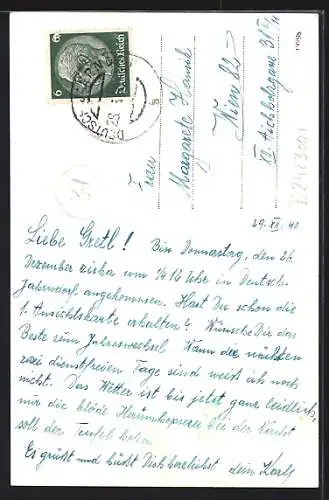 6
Deutsches Reich
6
DEUTSCH
Frau
Margarete Hanik
Wien 82
29. XII. 40
Liebe Gretl! Bin Donnerstag, den 26.
Dezember zirka um 1/4 12 Uhr in Deutsch-
Jahrndorf angekommen. Hast Du schon die
1. Ansichtskarte erhalten? Wünsche Dir das
Beste zum Jahreswechsel. Wann die nächsten
zwei dienstfreien Tage sind weiß ich noch
nicht. Das Wetter ist bis jetzt ganz leidlich,
nur die blöde in der Nacht
soll der Teufel holen.
Es grüßt und küßt Dich herzlichst dein Karl